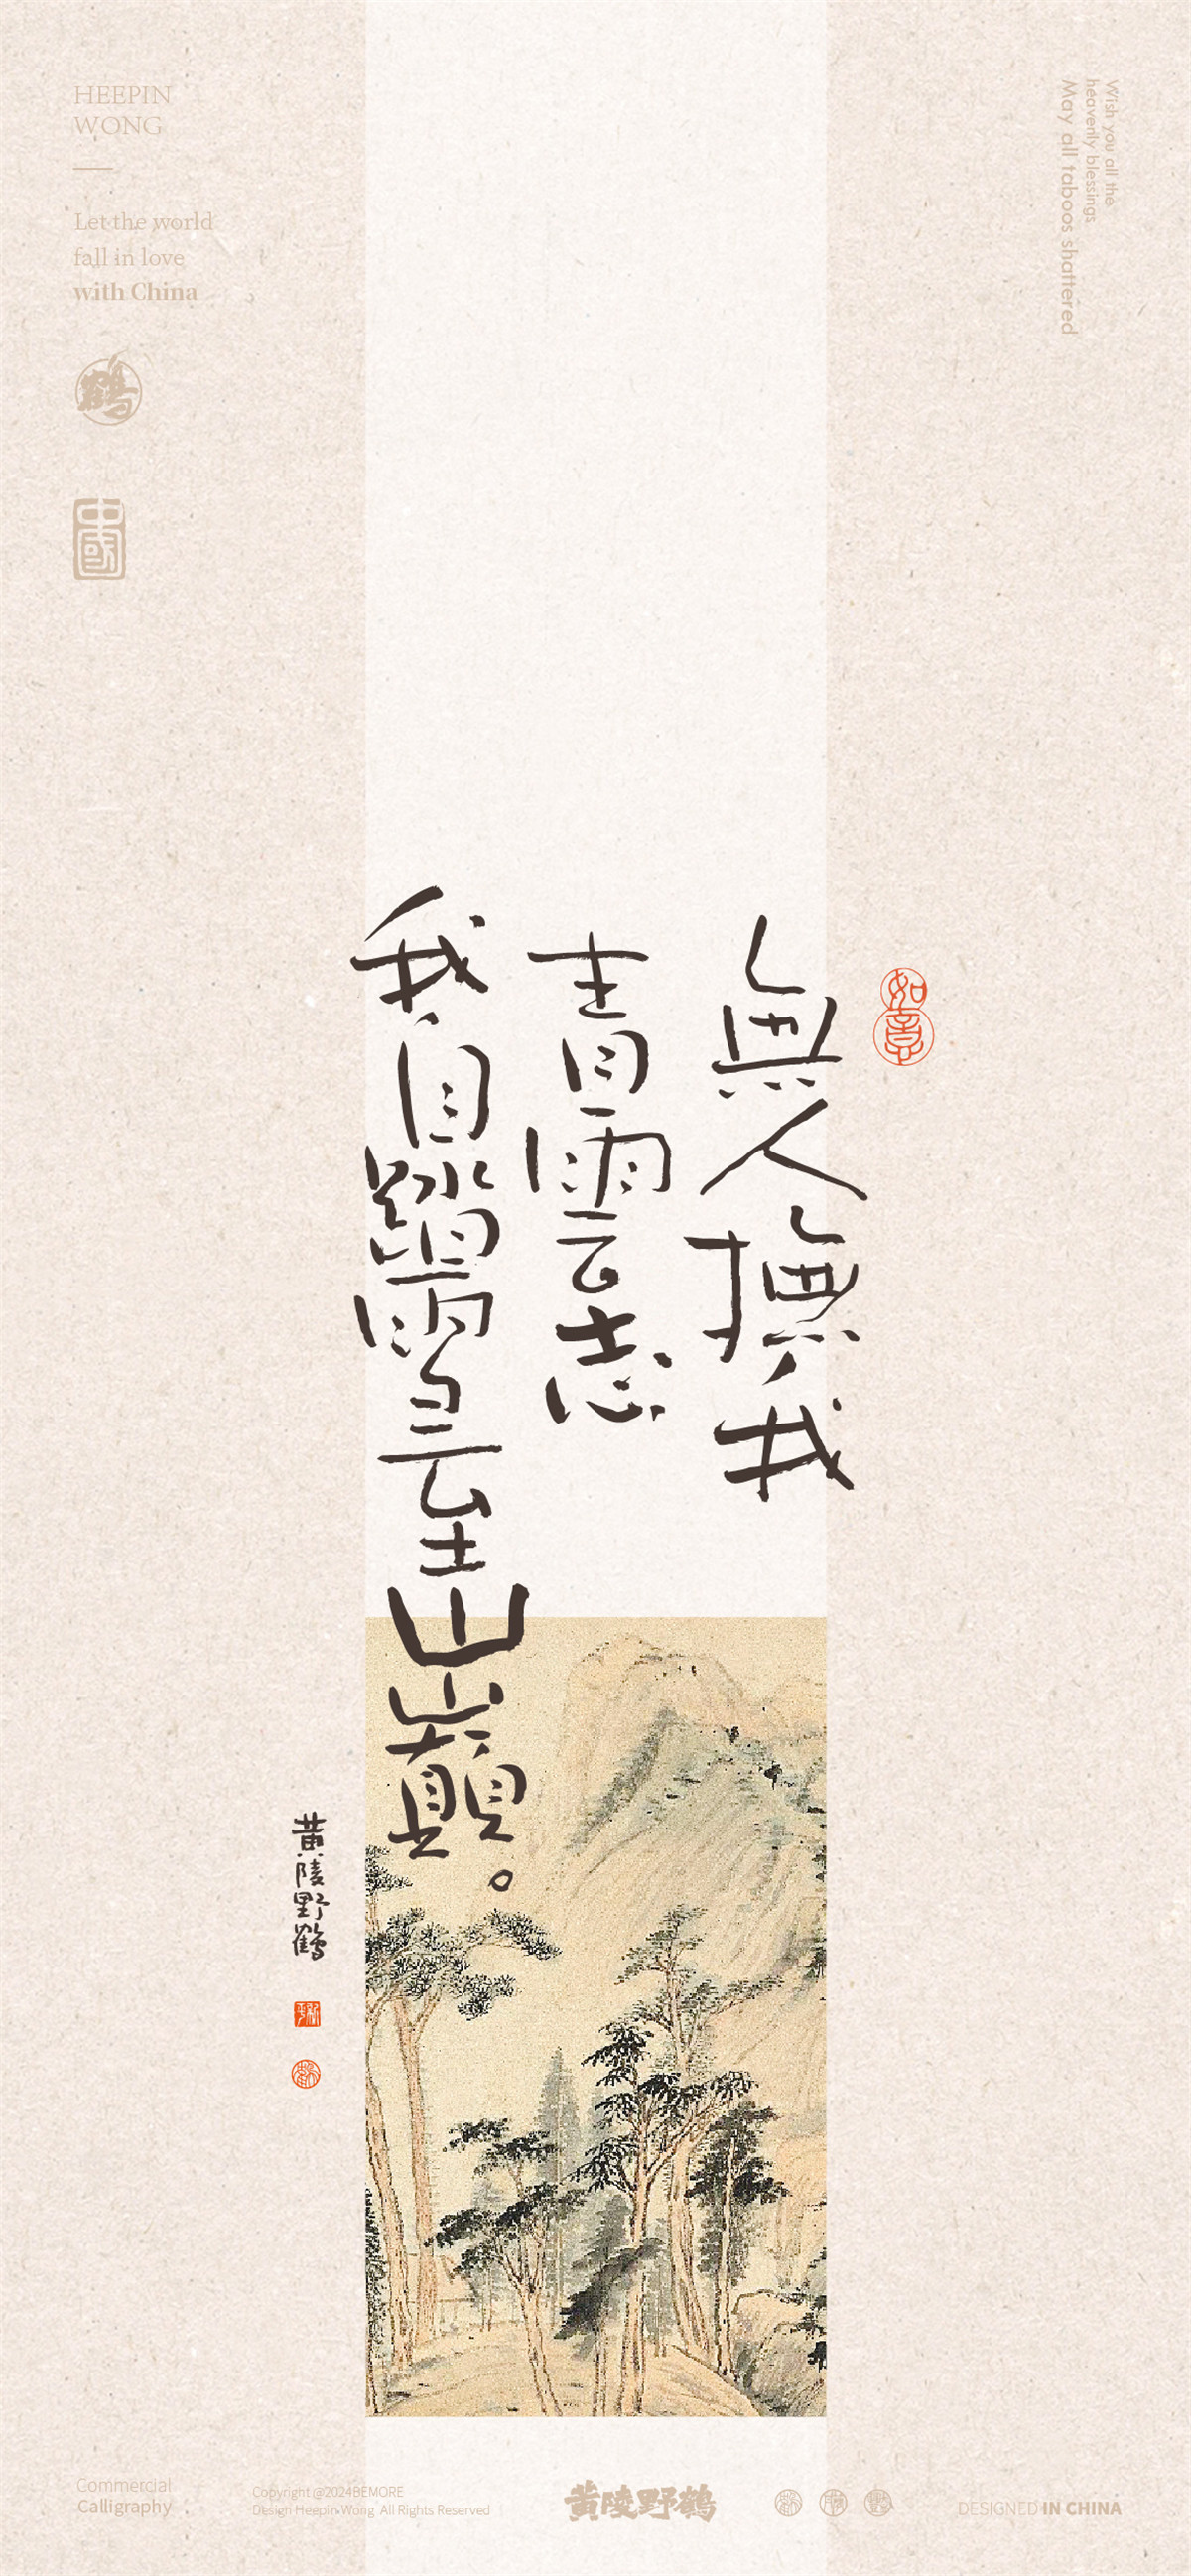 HEEPIN
WONG
Let the world
fall in love
with China
鶴
中國
Wish you all the
heavenly blessings
May all taboos shattered
如意
無人撫我
青雲志
我自踏雪至山巔。
黄陵野鶴
Commercial
Calligraphy
Copyright @2024BEMORE
Design Heepin Wong All Rights Reserved
黄陵野鶴
DESIGNED IN CHINA